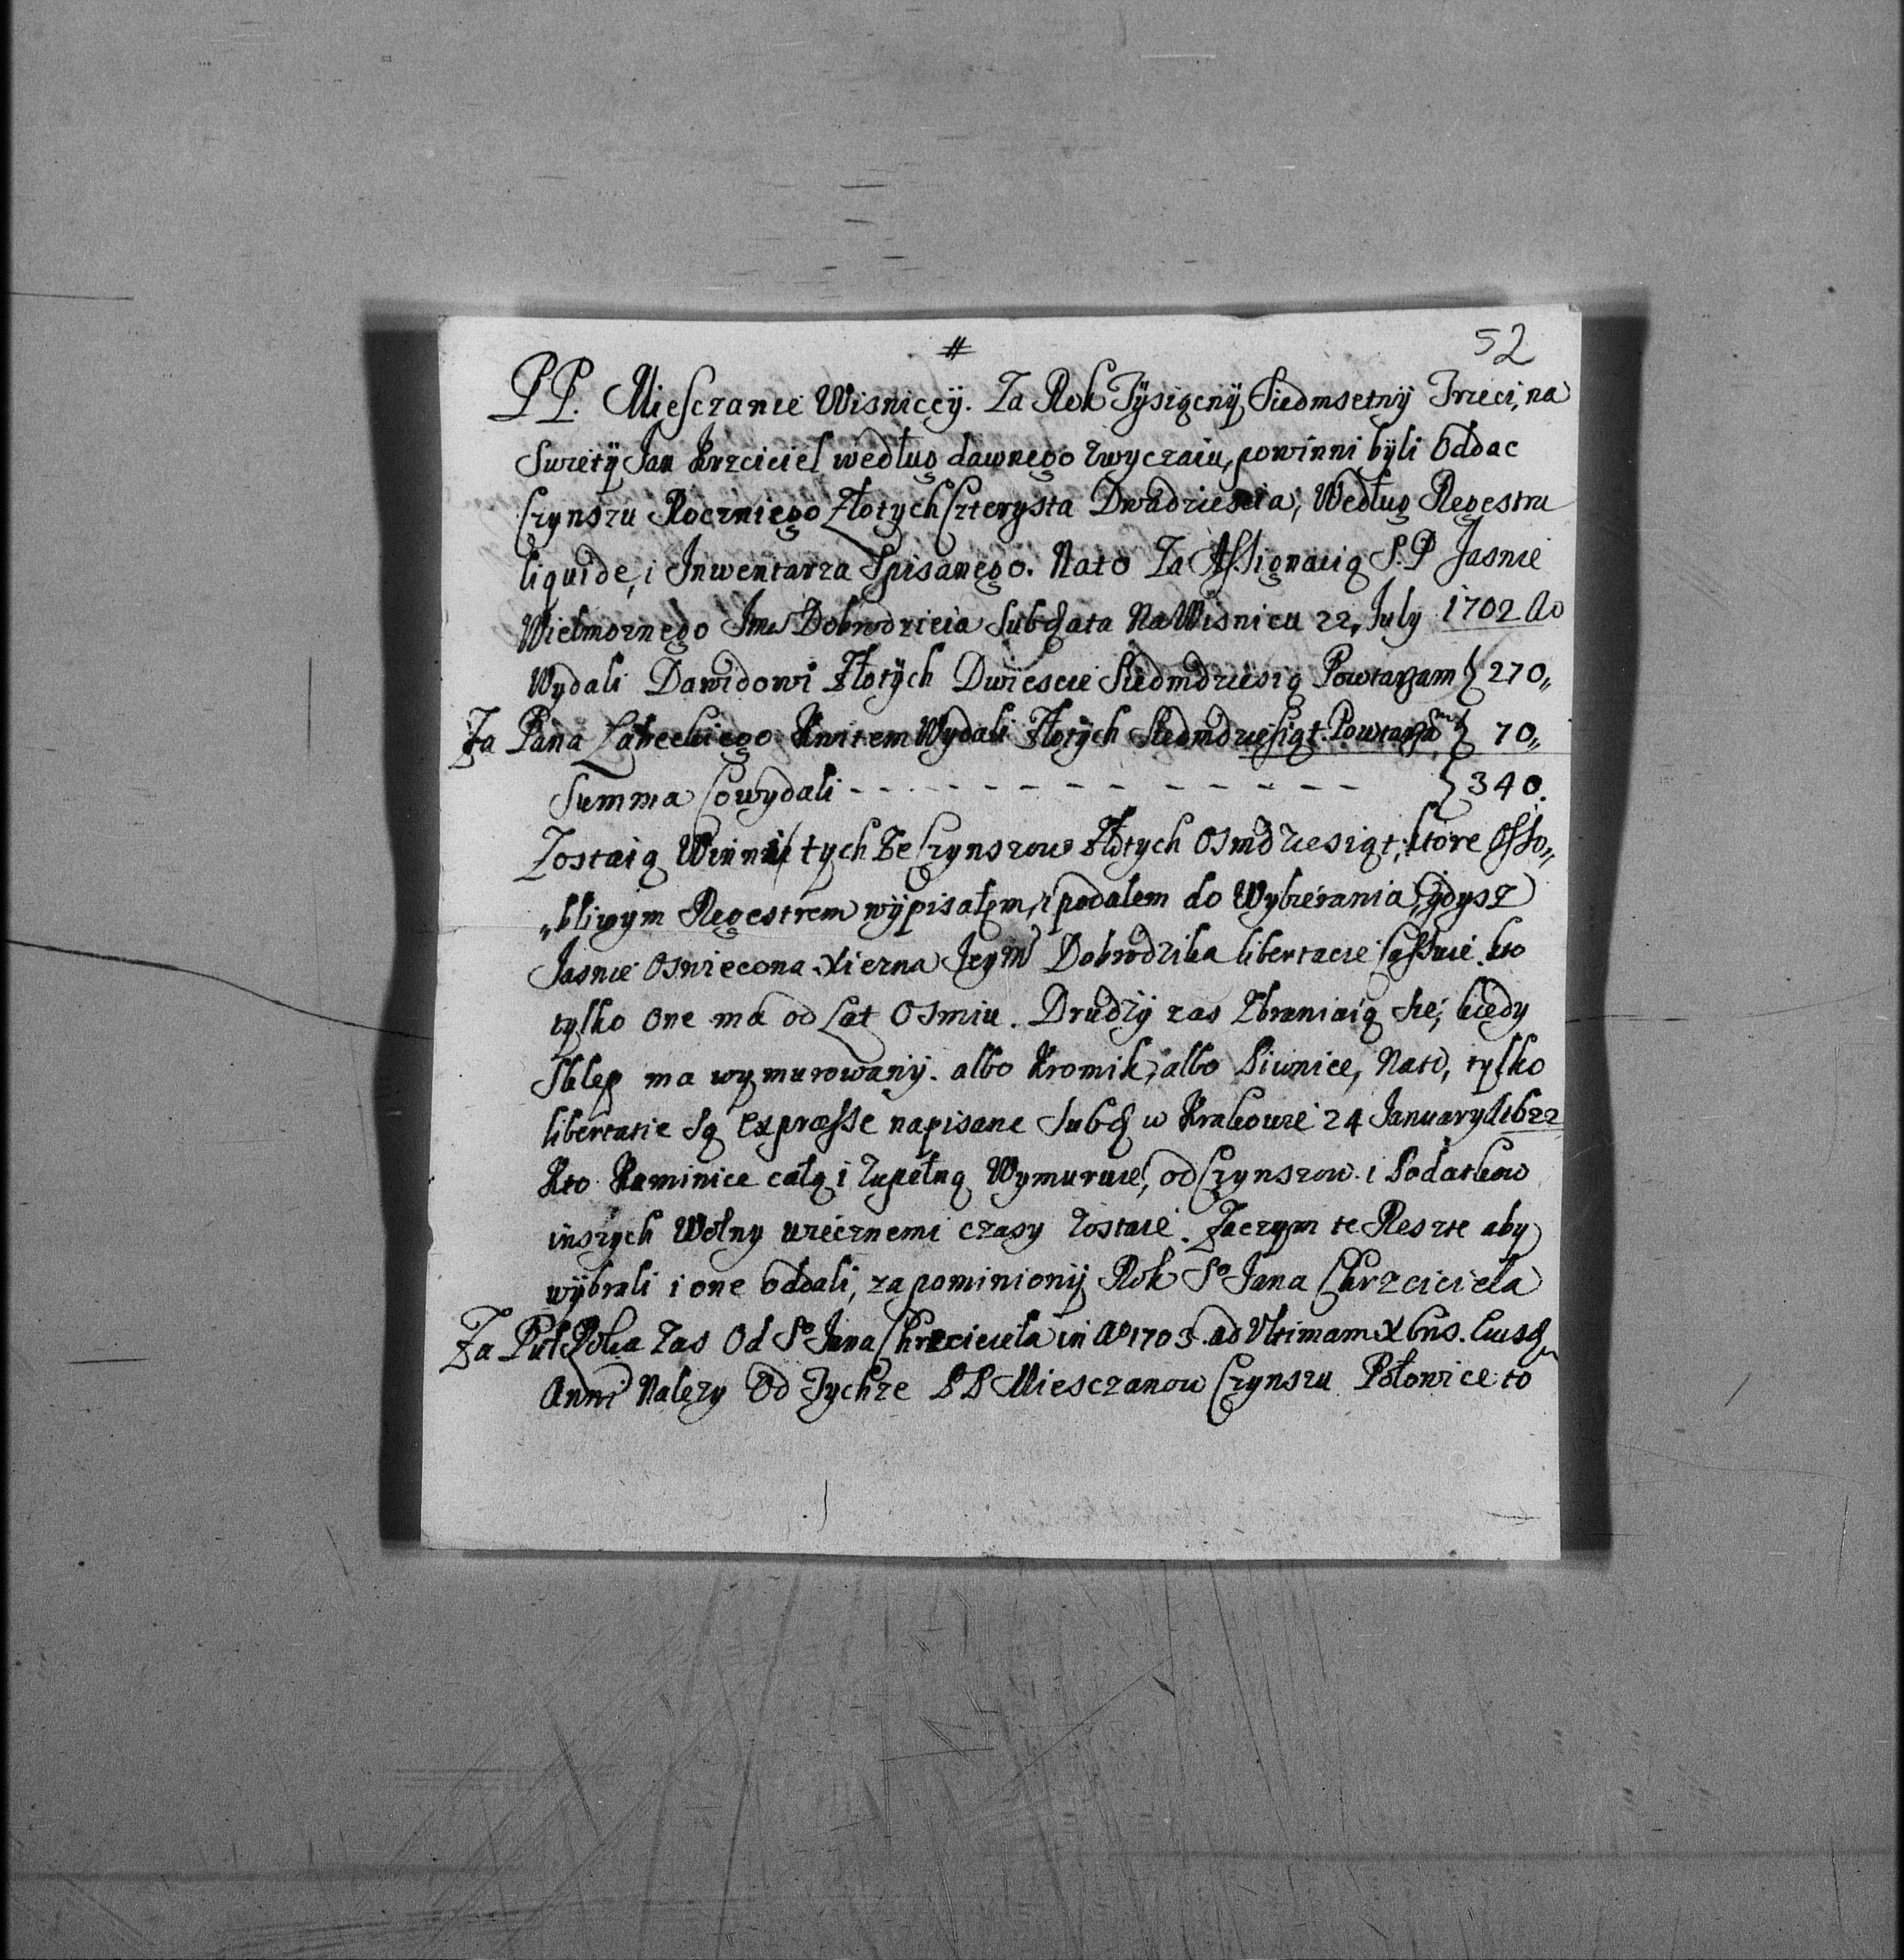 #
52
PP. Miesczanie Wisniccÿ. Za Rok Tÿsiącnÿ Siedmsetnÿ Trzeci, na
Swietÿ Jan Krzciciel według dawnego zwyczaiu, powinni bÿli Oddac
Czynszu Roczniego Złotych Czterysta Dwadziescia, Według Regestru
liquide, i Inwentarza Spisanego. Nato Za Assignacią S. P Jasnie
Wielmoznego Dobrodzieia Na Wisniczu 22, July 1702 Ao
Wydali Dawidowi Złotÿch Dwiescie Siedmdziesią Powtarzam } 270„
Za Pana Kwitem Wydali Złotÿch Siedmdziesiąt. } 70„
Summa Cowydali - - - - - - - - - - - - - } 340.
Zostaią Winni tych Ze Czynszow Złotych Osmdziesiąt, ktore Osso„
„bliwym Regestrem wÿpisałem, i podałem do Wybierania, gdysz
Jasnie Oswiecona Xiezna Jeym Dobrodzika libertacie kto
tylko One ma od Lat Osmiu. Drudzÿ zas Zbraniaią sie, kiedy
Sklep ma wymurowanÿ. albo Kromik, albo Piwnice, Nato, tylko
libertatie są Expresse napisane w Krakowie 24 January A 1622
Kto Kaminice całą i zupełną Wymuruie, od Czynszow i Podatkow
inszych Wolny wiecznemi czasy zostaie. Zaczym te Reszte aby
wÿbrali i one oddali, za pominionÿ Rok So Jana Chrzciciela
Za Puł Roka Zas Od So Jana Chrzciciela in Ao 1703 ad Vltimam Xbris.
Anni Nalezy Od Tychze PP Miesczanow Czynszu Połowice to